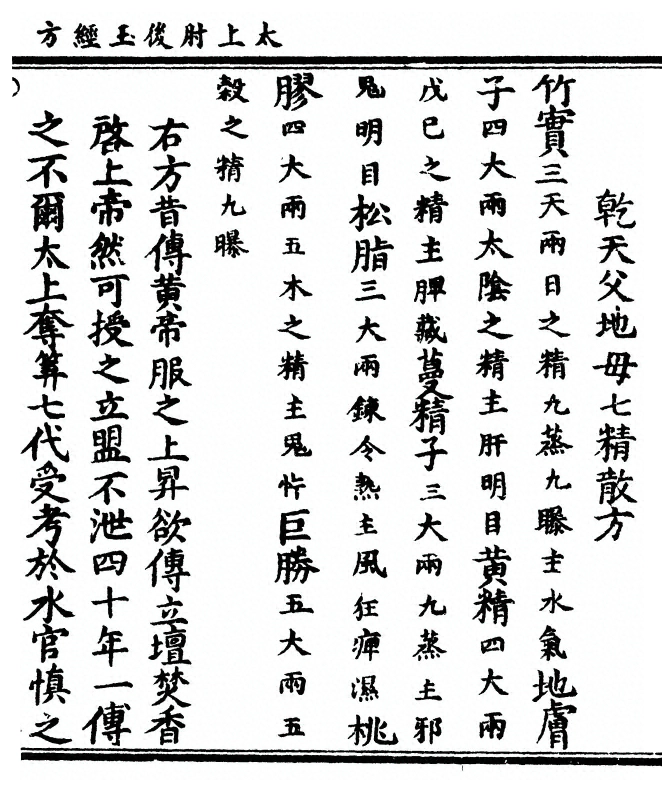 太上肘後玉經方
乾天父地母七精散方
竹實三天兩日之精九蒸九曝主水氣地膚
子四大兩太陰之精主肝明目黄精四大兩
戊巳之精主脾藏蔓精子三大兩九蒸主邪
鬼明目松脂三大兩鍊令熟主風狂痺濕桃
膠四大兩五木之精主鬼忤巨勝五大兩五
穀之精九曝
右方昔傳黄帝服之上昇欲傳立壇焚香
啓上帝然可授之立盟不泄四十年一傳
之不爾太上奪筭七代受考於水官慎之